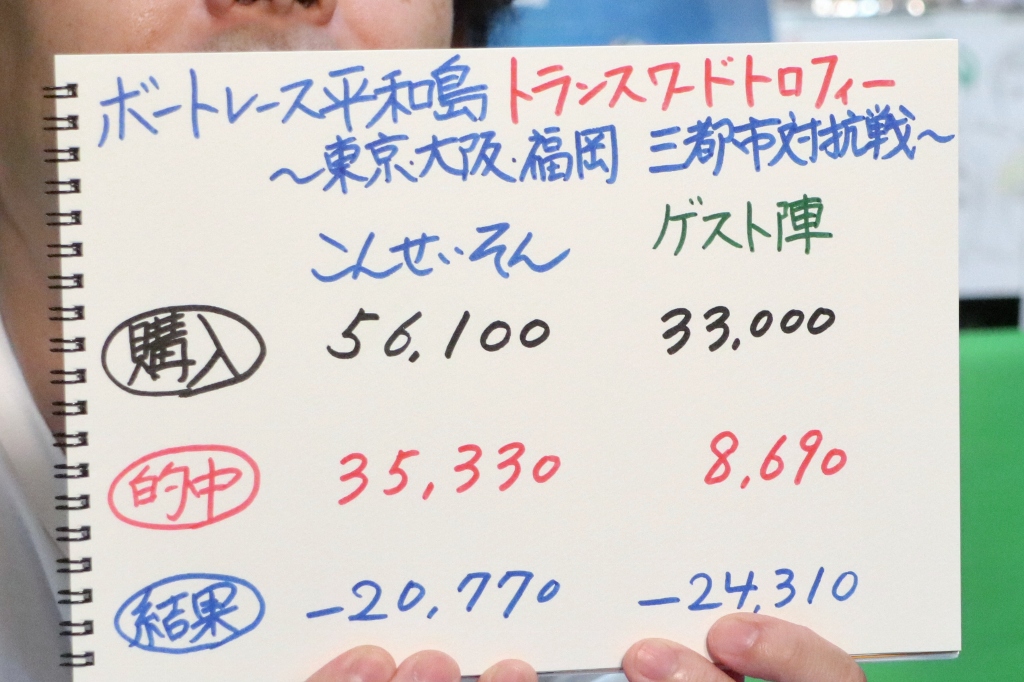 ボートレース平和島 トランスワードトロフィー
～東京・大阪・福岡 三都市対抗戦～
こんせい・そん ゲスト陣
購入 56,100 33,000
的中 35,330 8,690
結果 -20,770 -24,310